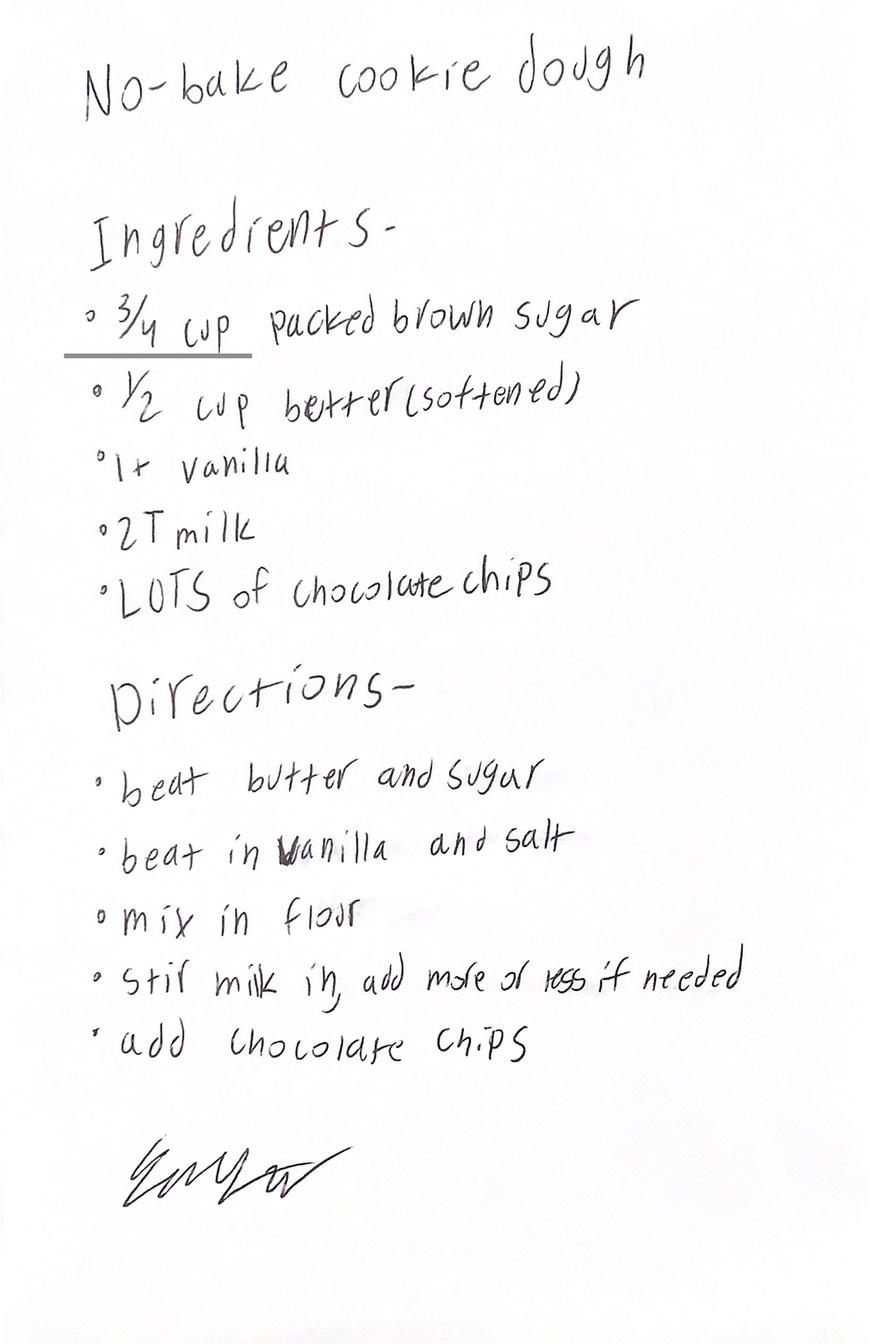 No-bake cookie dough
Ingredients-
• 3/4 cup packed brown sugar
• 1/2 cup better (softened)
• 1t vanilla
• 2T milk
• LOTS of chocolate chips
Directions-
• beat butter and sugar
• beat in vanilla and salt
• mix in flour
• stir milk in, add more or less if needed
• add chocolate chips